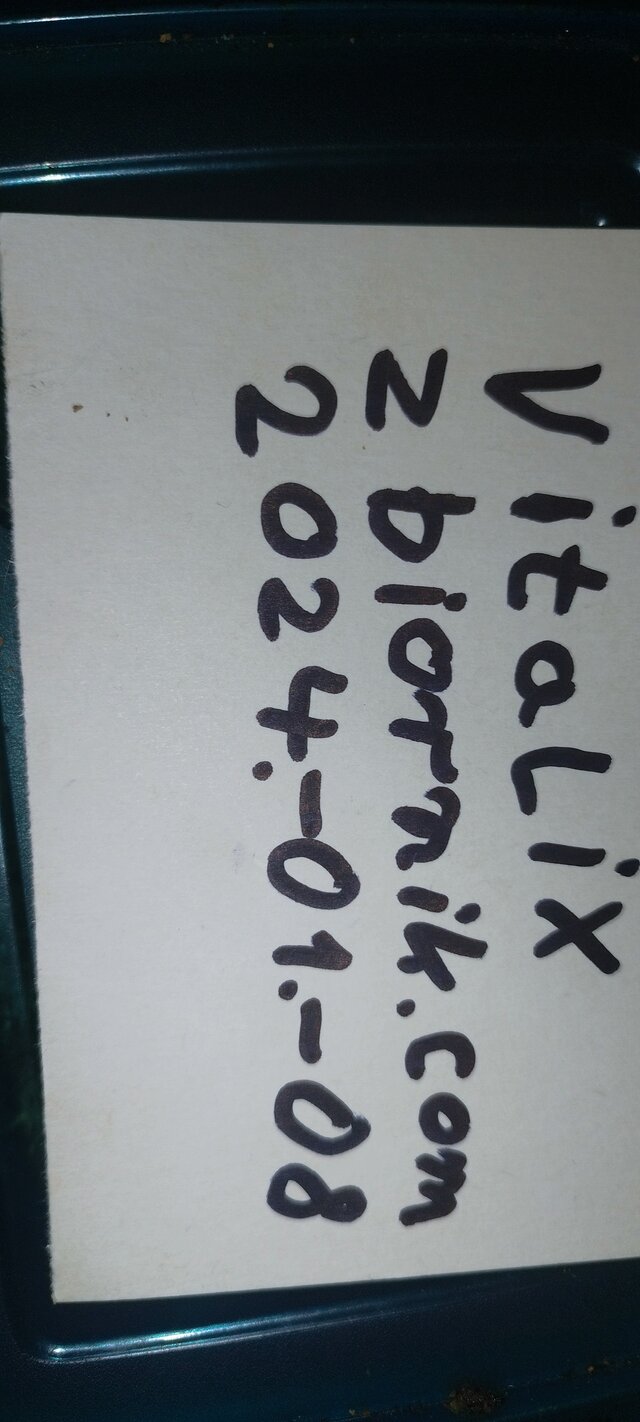 VitaLiX
z biornik.com
2024.-01.-08